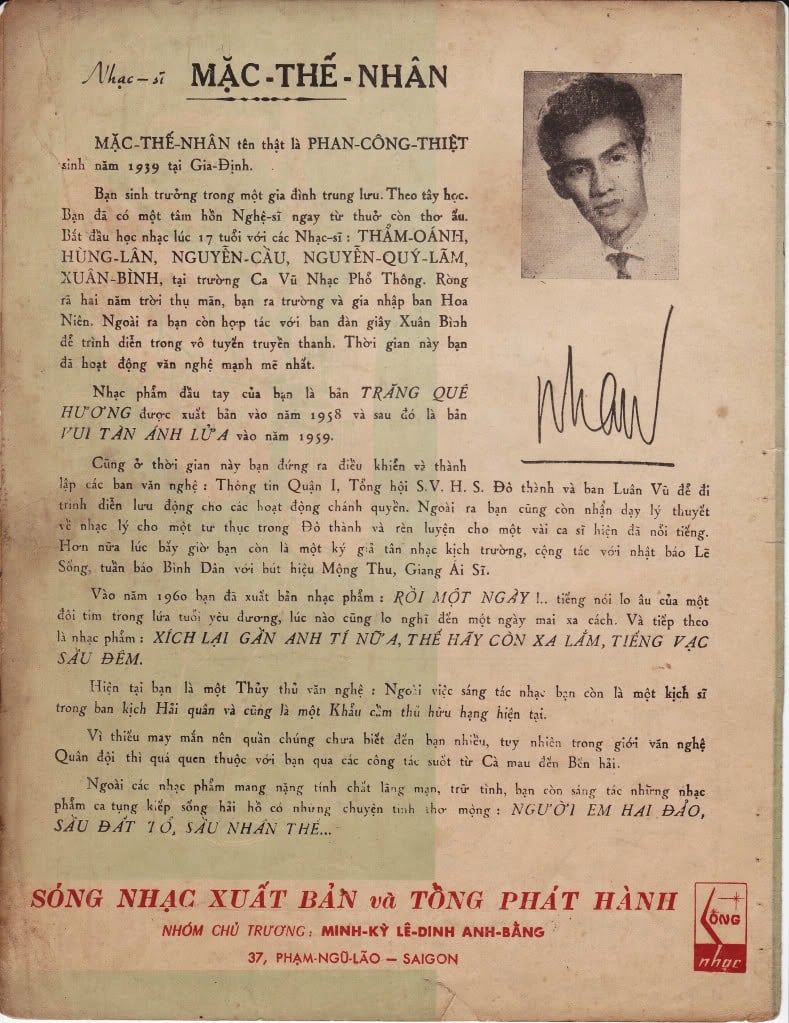 Nhạc-sĩ MẶC-THẾ-NHÂN
MẶC-THẾ-NHÂN tên thật là PHAN-CÔNG-THIỆT
sinh năm 1939 tại Gia-Định.
Bạn sinh trưởng trong một gia đình trung lưu. Theo tây học.
Bạn đã có một tâm hồn Nghệ-sĩ ngay từ thuở còn thơ ấu.
Bắt đầu học nhạc lúc 17 tuổi với các Nhạc-sĩ : THẨM-OÁNH,
HÙNG-LÂN, NGUYỄN-CẦU, NGUYỄN-QUÝ-LÃM,
XUÂN-BÌNH, tại trường Ca Vũ Nhạc Phổ Thông. Ròng
rã hai năm trời thụ mãn, bạn ra trường và gia nhập ban Hoa
Niên. Ngoài ra bạn còn hợp tác với ban đàn giây Xuân Bình
để trình diễn trong vô tuyến truyền thanh. Thời gian này bạn
đã hoạt động văn nghệ mạnh mẽ nhất.
Nhạc phẩm đầu tay của bạn là bản TRĂNG QUÊ
HƯƠNG được xuất bản vào năm 1958 và sau đó là bản
VUI TÀN ÁNH LỬA vào năm 1959.
nhân
Cũng ở thời gian này bạn đứng ra điều khiển và thành
lập các ban văn nghệ : Thông tin Quận I, Tổng hội S.V. H. S. Đô thành và ban Luân Vũ để đi
trình diễn lưu động cho các hoạt động chánh quyền. Ngoài ra bạn cũng còn nhận dạy lý thuyết
về nhạc lý cho một tư thục trong Đô thành và rèn luyện cho một vài ca sĩ hiện đã nổi tiếng.
Hơn nữa lúc bấy giờ bạn còn là một ký giả tân nhạc kịch trường, cộng tác với nhật báo Lẽ
Sống, tuần báo Bình Dân với bút hiệu Mộng Thu, Giang Ái Sĩ.
Vào năm 1960 bạn đã xuất bản nhạc phẩm : RỒI MỘT NGÀY !.. tiếng nói lo âu của một
đôi tim trong lứa tuổi yêu đương, lúc nào cũng lo nghĩ đến một ngày mai xa cách. Và tiếp theo
là nhạc phẩm : XÍCH LẠI GẦN ANH TÍ NỮA, THẾ HÃY CÒN XA LẮM, TIẾNG VẠC
SẦU ĐÊM.
Hiện tại bạn là một Thủy thủ văn nghệ : Ngoài việc sáng tác nhạc bạn còn là một kịch sĩ
trong ban kịch Hải quân và cũng là một Khẩu cầm thủ hữu hạng hiện tại.
Vì thiếu may mắn nên quần chúng chưa biết đến bạn nhiều, tuy nhiên trong giới văn nghệ
Quân đội thì quá quen thuộc với bạn qua các công tác suốt từ Cà mau đến Bến hải.
Ngoài các nhạc phẩm mang nặng tính chất lãng mạn, trữ tình, bạn còn sáng tác những nhạc
phẩm ca tụng kiếp sống hải hồ có những chuyện tình thơ mộng : NGƯỜI EM HẢI ĐẢO,
SẦU ĐẤT TỔ, SẦU NHÂN THẾ...
SÓNG NHẠC XUẤT BẢN và TỔNG PHÁT HÀNH
NHÓM CHỦ TRƯƠNG: MINH-KỲ LÊ-DINH ANH-BẰNG
37, PHẠM-NGŨ-LÃO — SAIGON
SÓNG
nhạc